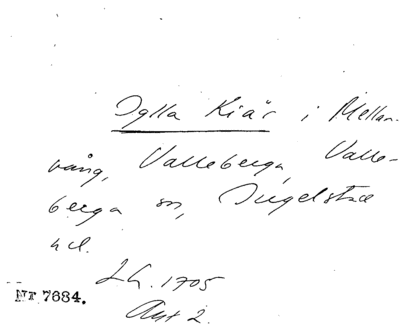 Jylla Kiär i Mellan-
vång, Valleberga, Valle-
berga sn, Ingelstad
hd.
LA. 1705
Akt 2.
NT 7684.